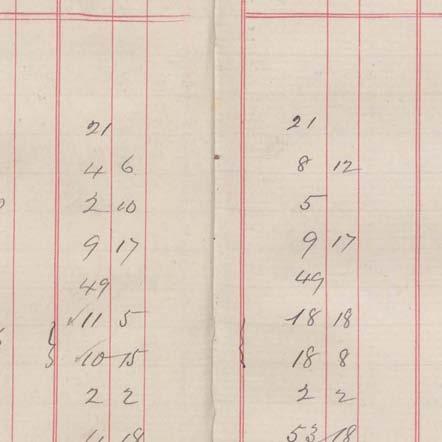 21 21
4 6 8 12
2 10 5
9 17 9 17
49 49
11 5 18 18
10 15 18 8
2 2 2 2
18 53 18